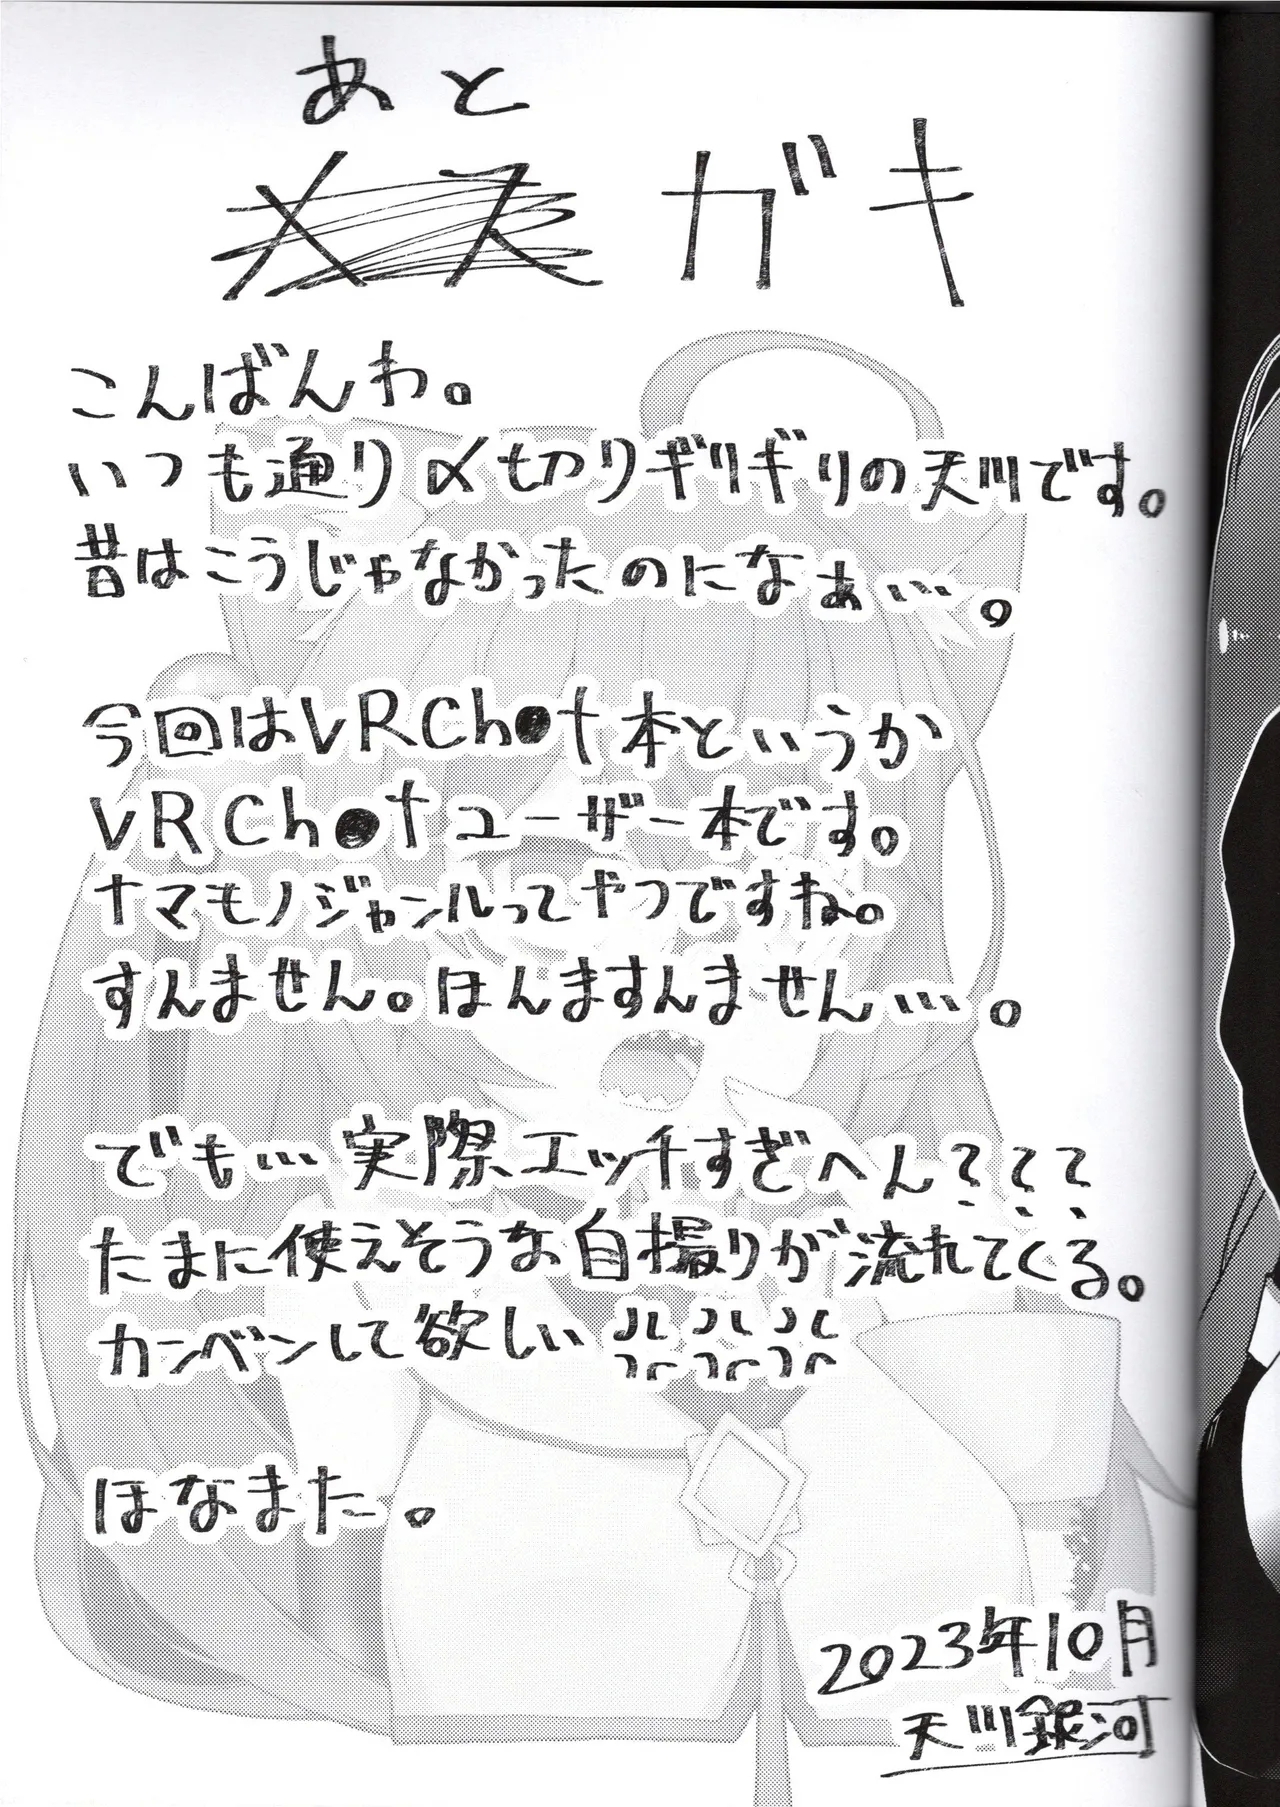 あと
メス ガキ
こんばんわ。
いつも通り〆切りギリギリの天川です。
昔はこうじゃなかったのになぁ…。
今回はVRCh●t本というか
VRCh●tユーザー本です。
ナマモノジャンルってやつですね。
すんません。ほんますんません…。
でも…実際エッチすぎへん???
たまに使えそうな自撮りが流れてくる。
カンベンして欲しい💢💢💢
ほなまた。
2023年10月
天川銀河